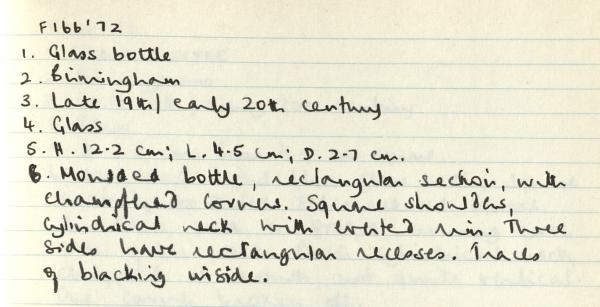 F166'72
1. Glass bottle
2. Birmingham
3. Late 19th/ early 20th century
4. Glass
5. H. 12.2 cm; L. 4.5 cm; D. 2.7 cm.
6. Moulded bottle, rectangular section, with
champfered corners. Square shoulders,
cylindrical neck with everted rim. Three
sides have rectangular recesses. Traces
of blacking inside.